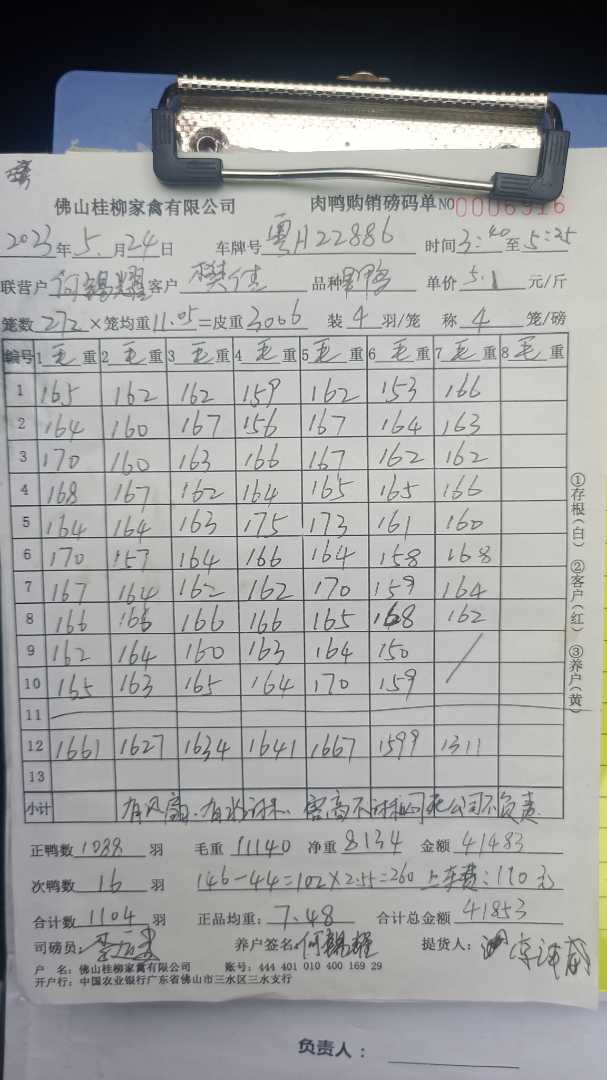 佛山桂柳家禽有限公司 肉鸭购销磅码单 NO 0006916
2023年5月24日 车牌号 粤H22886 时间 3:40 至 5:25
联营户 何锡耀 客户 樊佳 品种 鸭 单价 5.1 元/斤
笼数 272 ×笼均重 11.05 =皮重 3006 装 4 羽/笼 称 4 笼/磅
编号 1 毛重 2 毛重 3 毛重 4 毛重 5 毛重 6 毛重 7 毛重 8 毛重
1 165 162 162 159 162 153 166
2 164 160 167 156 167 164 163
3 170 160 163 166 167 162 162
4 168 167 162 164 165 165 166
5 164 164 163 175 173 161 160
6 170 157 164 166 164 158 168
7 167 164 162 162 170 159 164
8 166 166 166 166 165 168 162
9 162 164 160 163 164 150
10 165 163 165 164 170 159
11
12 1661 1627 1634 1641 1667 1599 1311
13
小计 有风扇、有水 死公司不负责
正鸭数 1088 羽 毛重 11140 净重 8134 金额 41483
次鸭数 16 羽 146-44=102×2.55=260 上车费:110元
合计数 1104 羽 正品均重: 7.48 合计总金额 41853
司磅员: 养户签名: 何锡耀 提货人:
户 名: 佛山桂柳家禽有限公司 账号: 444 401 010 400 169 29
开户行: 中国农业银行广东省佛山市三水区三水支行
①存根(白) ②客户(红) ③养户(黄)
负责人: